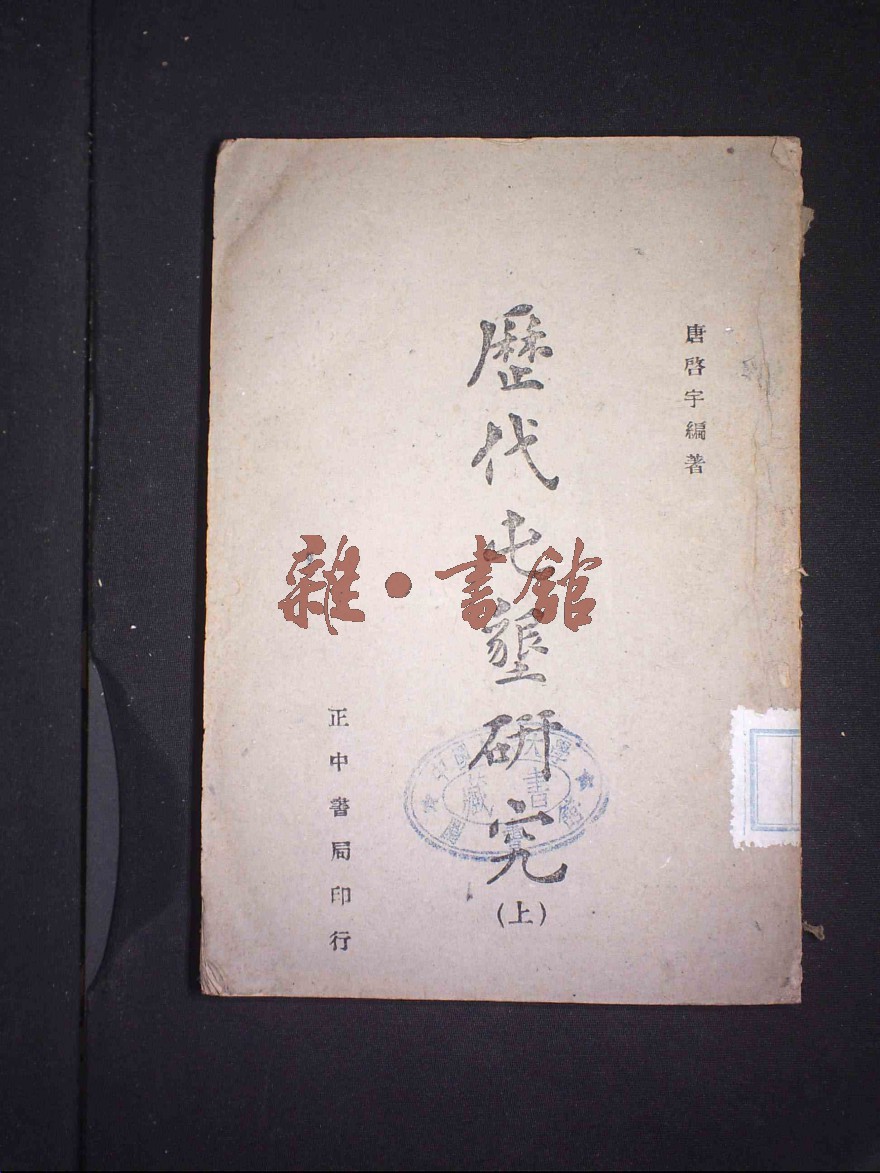 唐啓宇編著
歷代屯墾研究
(上)
正中書局印行
雜·書館
藏書